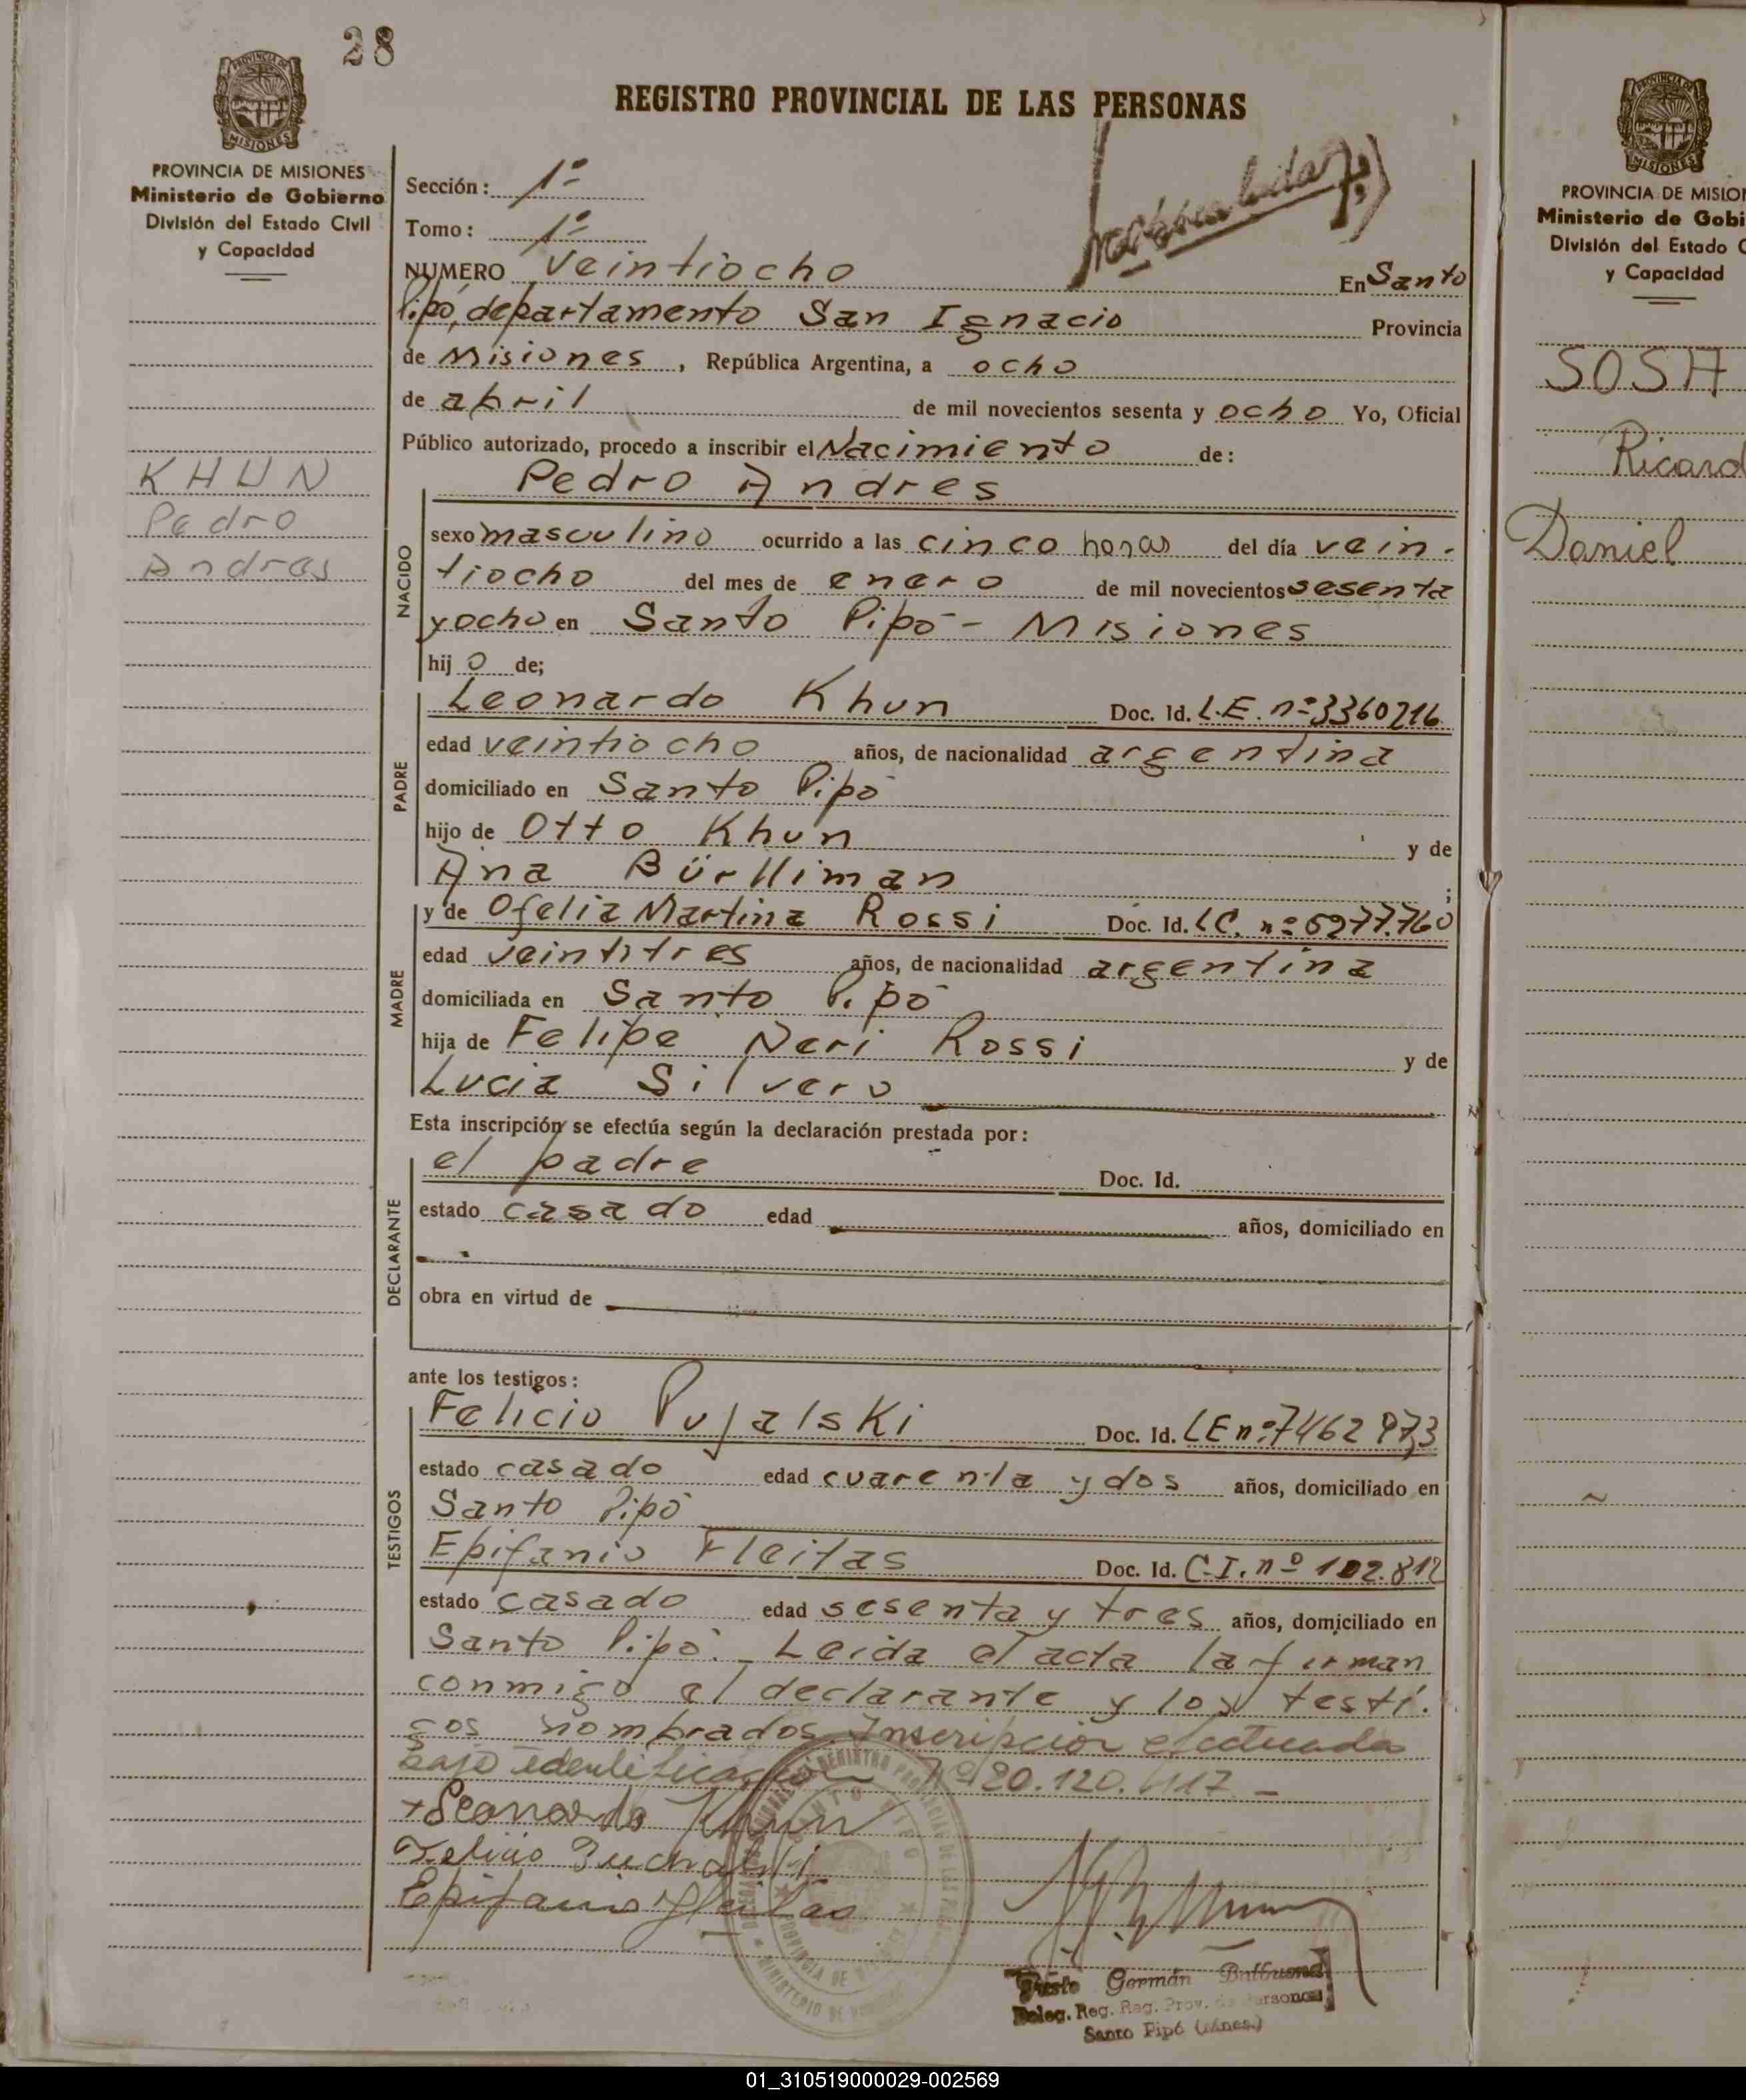 28
REGISTRO PROVINCIAL DE LAS PERSONAS
PROVINCIA DE MISIONES
Ministerio de Gobierno
División del Estado Civil
y Capacidad
KHUN
Pedro
Andres
Sección: 1º
Tomo: 1º
NUMERO Veintiocho En Santo
Pipó, departamento San Ignacio Provincia
de Misiones, República Argentina, a ocho
de abril de mil novecientos sesenta y ocho Yo, Oficial
Público autorizado, procedo a inscribir el Nacimiento de:
Pedro Andres
NACIDO
sexo masculino ocurrido a las cinco horas del día vein-
tiocho del mes de enero de mil novecientos sesenta
y ocho en Santo Pipó - Misiones
hijo de;
PADRE
Leonardo Khun Doc. Id. L.E. nº 3360216
edad veintiocho años, de nacionalidad argentina
domiciliado en Santo Pipó
hijo de Otto Khun y de
Ana Bürlliman ;
MADRE
y de Ofelia Martina Rossi Doc. Id. LC. nº 6277.760
edad veintitres años, de nacionalidad argentina
domiciliada en Santo Pipó
hija de Felipe Neri Rossi y de
Lucia Silvero
Esta inscripción se efectúa según la declaración prestada por:
DECLARANTE
el padre Doc. Id.
estado casado edad años, domiciliado en
obra en virtud de
ante los testigos:
TESTIGOS
Felicio Pujalski Doc. Id. LE nº 7462973
estado casado edad cuarenta y dos años, domiciliado en
Santo Pipó
Epifanio Fleitas Doc. Id. C.I. nº 102.812
estado casado edad sesenta y tres años, domiciliado en
Santo Pipó. Leida el acta la firman
conmigo el declarante y los testi-
gos nombrados. Inscripcion efectuada
bajo identificación Nº 20.120.417 -
Leonardo Khun
Epifanio Fleitas
Germán Balbuena
Deleg. Reg. Prov. de Personas
Santo Pipó (Mnes.)
PROVINCIA DE MISION
Ministerio de Gobi
División del Estado C
y Capacidad
SOSA
Ricard
Daniel
01_310519000029-002569